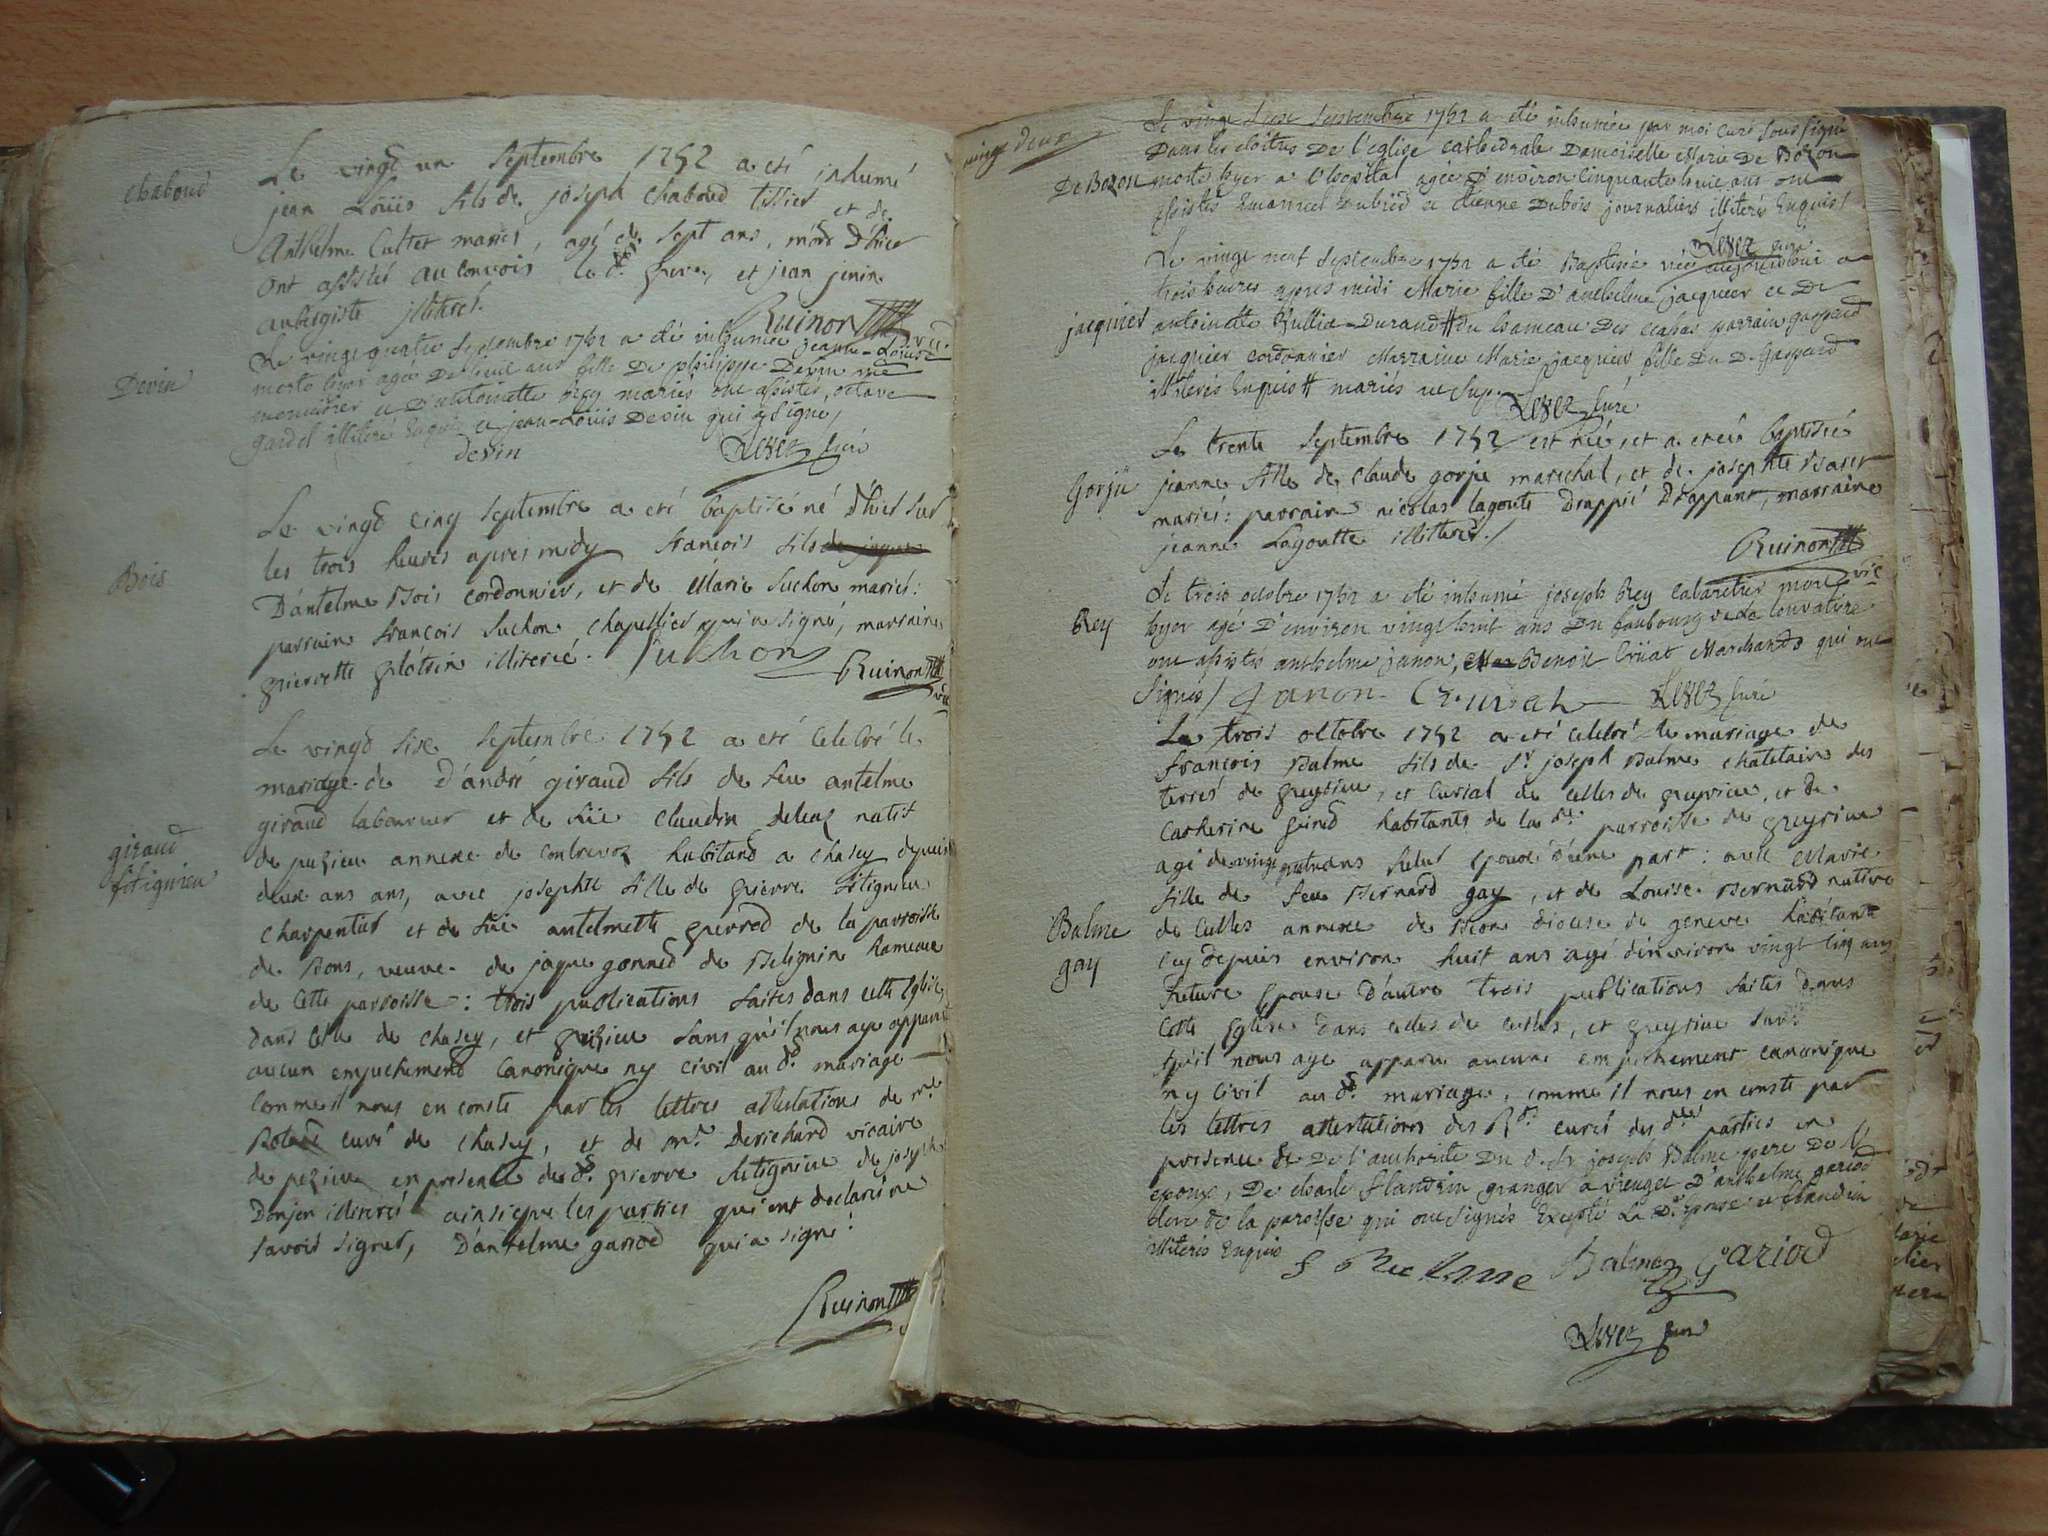 chaboud
Le vingt un Septembre 1752 a eté inhumé
jean Loüis fils de joseph chaboud tissier et de
Anthelme Cuttet mariés, agé de sept ans, mord d'hier
ont assistés au convois le d. frere, et jean jenin
aubergiste illiterés.
Ruinon vic
Devin
Le vingt quatre Septembre 1752 a été inhumée jeanne-Loüise
morte hyer agée De huit ans fille De philippe Devin me
menuisier et D'antoinette Rey mariés ont assistés, octave
gardet illiteré Enquis et jean-Loüis Devin qui a Signé/
devin Revez Curé
Bois
Le vingt cinq septembre a eté baptisé né d'hier sur
les trois heures apres midy francois fils
D'antelme Bois cordonnier, et de Marie Suchon mariés:
parrain francois Suchon chapellier qui a signé, marraine
pierrette illiterée. Suchon
Ruinon vic
giraud
fitignieu
Le vingt six Septembre 1752 a eté celebré le
mariage de D'andré giraud fils de feu antelme
giraud laboureur et de füe Claudin natif
de puzieu annexe de contrevoz habitand a chasey depuis
deux ans ans, avec josephte fille de pierre fitignieu
charpentier et de füe antelmette pierrod de la parroisse
de Bons, veuve de jaque gonned de Belignin hameau
de cette parroisse: trois publications faites dans cette Eglise
dans celle de chasey, et puzieu sans qu'il nous aye apparu
aucun empechement Canonique ny civil au d. mariage
comme il nous en conste par les lettres attestations de mr
curé de chasey, et de mr Derichard vicaire
de pezieu en presence de d. pierre fitignieu de joseph
Donjon illiteré ainsi que les parties qui ont declaré ne
savoir signer, D'antelme gariod qui a signé:
Ruinon
vingt deux
De Bozon
Le vingt Septembre 1752 a été inhumée par moi curé Sous signé
Dans les cloîtres De l'eglise cathedrale Damoiselle Marie De Bozon
morte hyer a l'hopital agée D'environ Cinquante huit ans ont
assistés Emanuel et Etienne Dubois journaliers illiterés Enquis/
Revez curé
jacquier
Le vingt neuf Septembre 1752 a été Baptisée née aujourd'hui a
trois heures apres midi Marie fille D'anthelme jacquier et De
antoinette Durand # du hameau Des parrain gaspard
jacquier cordonnier Marraine Marie jacquier fille Du D. Gaspard
illiterés Enquis # mariés
Revez Curé
gorju
Le trente Septembre 1752 est née, et a eteé baptisée
jeanne fille de claude gorju marechal, et de josephte
mariés: parrain nicolas lagoute Drappié Drappant, marraine
jeanne Lagoutte illiterés./
Ruinon vic
Rey
Le trois octobre 1752 a été inhumé joseph Rey Cabaretier mort
hyer agé D'environ vingt huit ans Du faubourg de la
ont assistés anthelme janon, Benoit Crüat Marchands qui ont
Signés/ Janon Crüat Revez Curé
Balme
gay
Le trois octobre 1752 a eté celebré le mariage de
francois Balme fils de Sr joseph Balme chatelain des
terres de peyrieu, et curial de celles de peyrieu, et de
Catherine habitants de la de parroisse de peyrieu
agé de vingt quatre ans futur epoux d'une part: avec Marie
fille de feu Bernard gay, et de Louise Bernard native
de Culles annexe de diocese de geneve habitante
icy depuis environ huit ans agé d'environ vingt cinq ans
Future epouse d'autre trois publications faites dans
cette Eglise dans celles de culles, et peyrieu sans
qu'il nous aye apparu aucun empechement canonique
ny civil au d. mariage, comme il nous en conste par
les lettres attestations des Rds curés des des parties en
presence de De l'authorité Du d. Sr joseph Balme pere De l'
epoux, De charle flandrin granger a D'anthelme gariod
clerc de la paroisse qui ont signés Excepté La De Epouse et flandrin
illiterés Enquis
Balme gariod
Revez curé